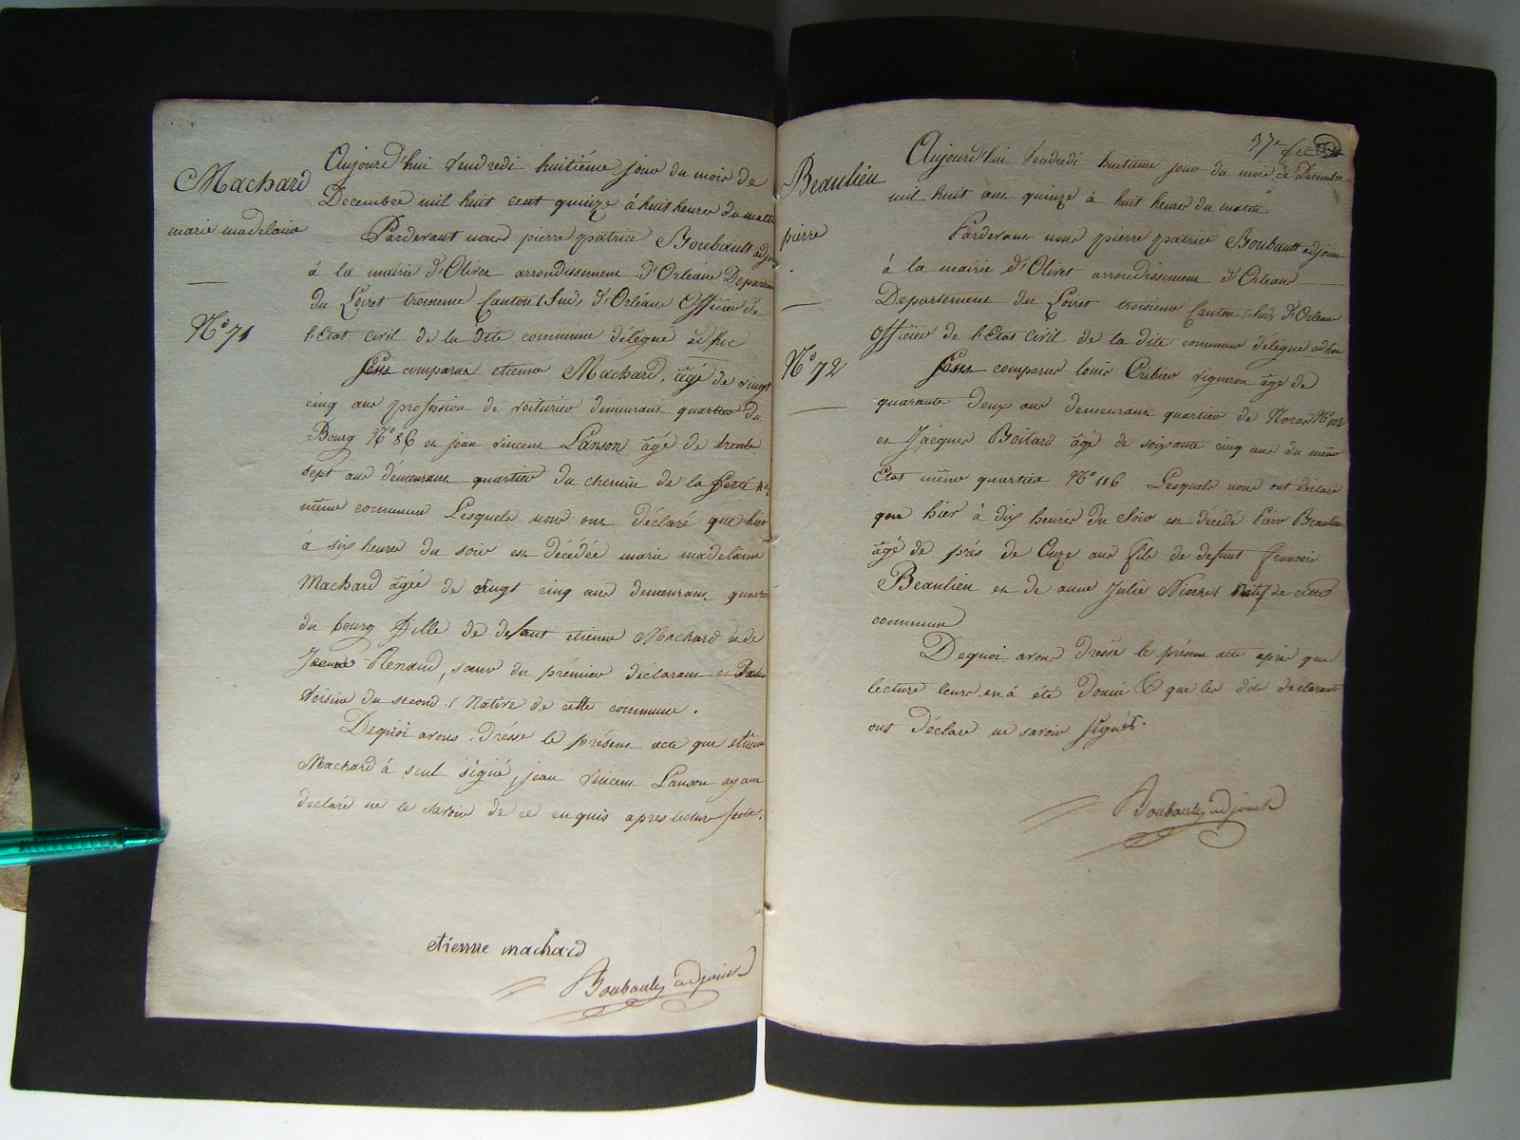 Machard
marie madelaine
N° 71
Aujourd'hui Vendredi huitième jour du mois de
Decembre mil huit cent quinze à huit heures du matin
Pardevant nous pierre patrice Boubault adjoint
à la mairie d'Olivet arrondissement d'Orléans Departement
du Loiret troisieme Canton (Sud) d'Orléans Officier de
l'Etat civil de la dite commune délégué ad hoc
Sont comparus etienne Machard, âgé de vingt
cinq ans profession de voiturier demeurant quartier du
Bourg N° 86 et jean vincent Lanson âgé de trente
sept ans demeurant quartier du chemin de la ferté
même commune Lesquels nous ont déclaré que hier
à six heures du soir est décédée marie madelaine
Machard âgée de vingt cinq ans demeurant quartier
du bourg fille de defunt etienne Machard et de
Renard, sœur du prémier déclarant et
Voisine du second. Native de cette commune.
Dequoi avons dressé le présent acte que etienne
Machard à seul signé, jean vincent Lanson ayant
declaré ne le savoir de ce enquis apres lecture faite.
etienne machard
Boubault adjoint
37e
Beaulieu
pierre
N° 72
Aujourd'hui Vendredi huitieme jour du mois de Décembre
mil huit cent quinze à huit heures du matin
Pardevant nous pierre patrice Boubault adjoint
à la mairie d'Olivet arrondissement d'Orléans
Departement du Loiret troisieme Canton (Sud) d'Orleans
Officier de l'Etat Civil de la dite commune délégué ad hoc
Sont comparus louis vigneron âgé de
quarante deux ans demeurant quartier de
et Jacques Boitard âgé de soixante cinq ans du même
Etat même quartier N° 116 Lesquels nous ont déclaré
que hier à dix heures du soir est décédé Beaulieu
âgé de près de ans fils de defunt francois
Beaulieu et de anne Julie natif de cette
commune
Dequoi avons dressé le présent acte après que
lecture leur en à été donné & que les dits declarants
ont déclaré ne savoir signer.
Boubault adjoint